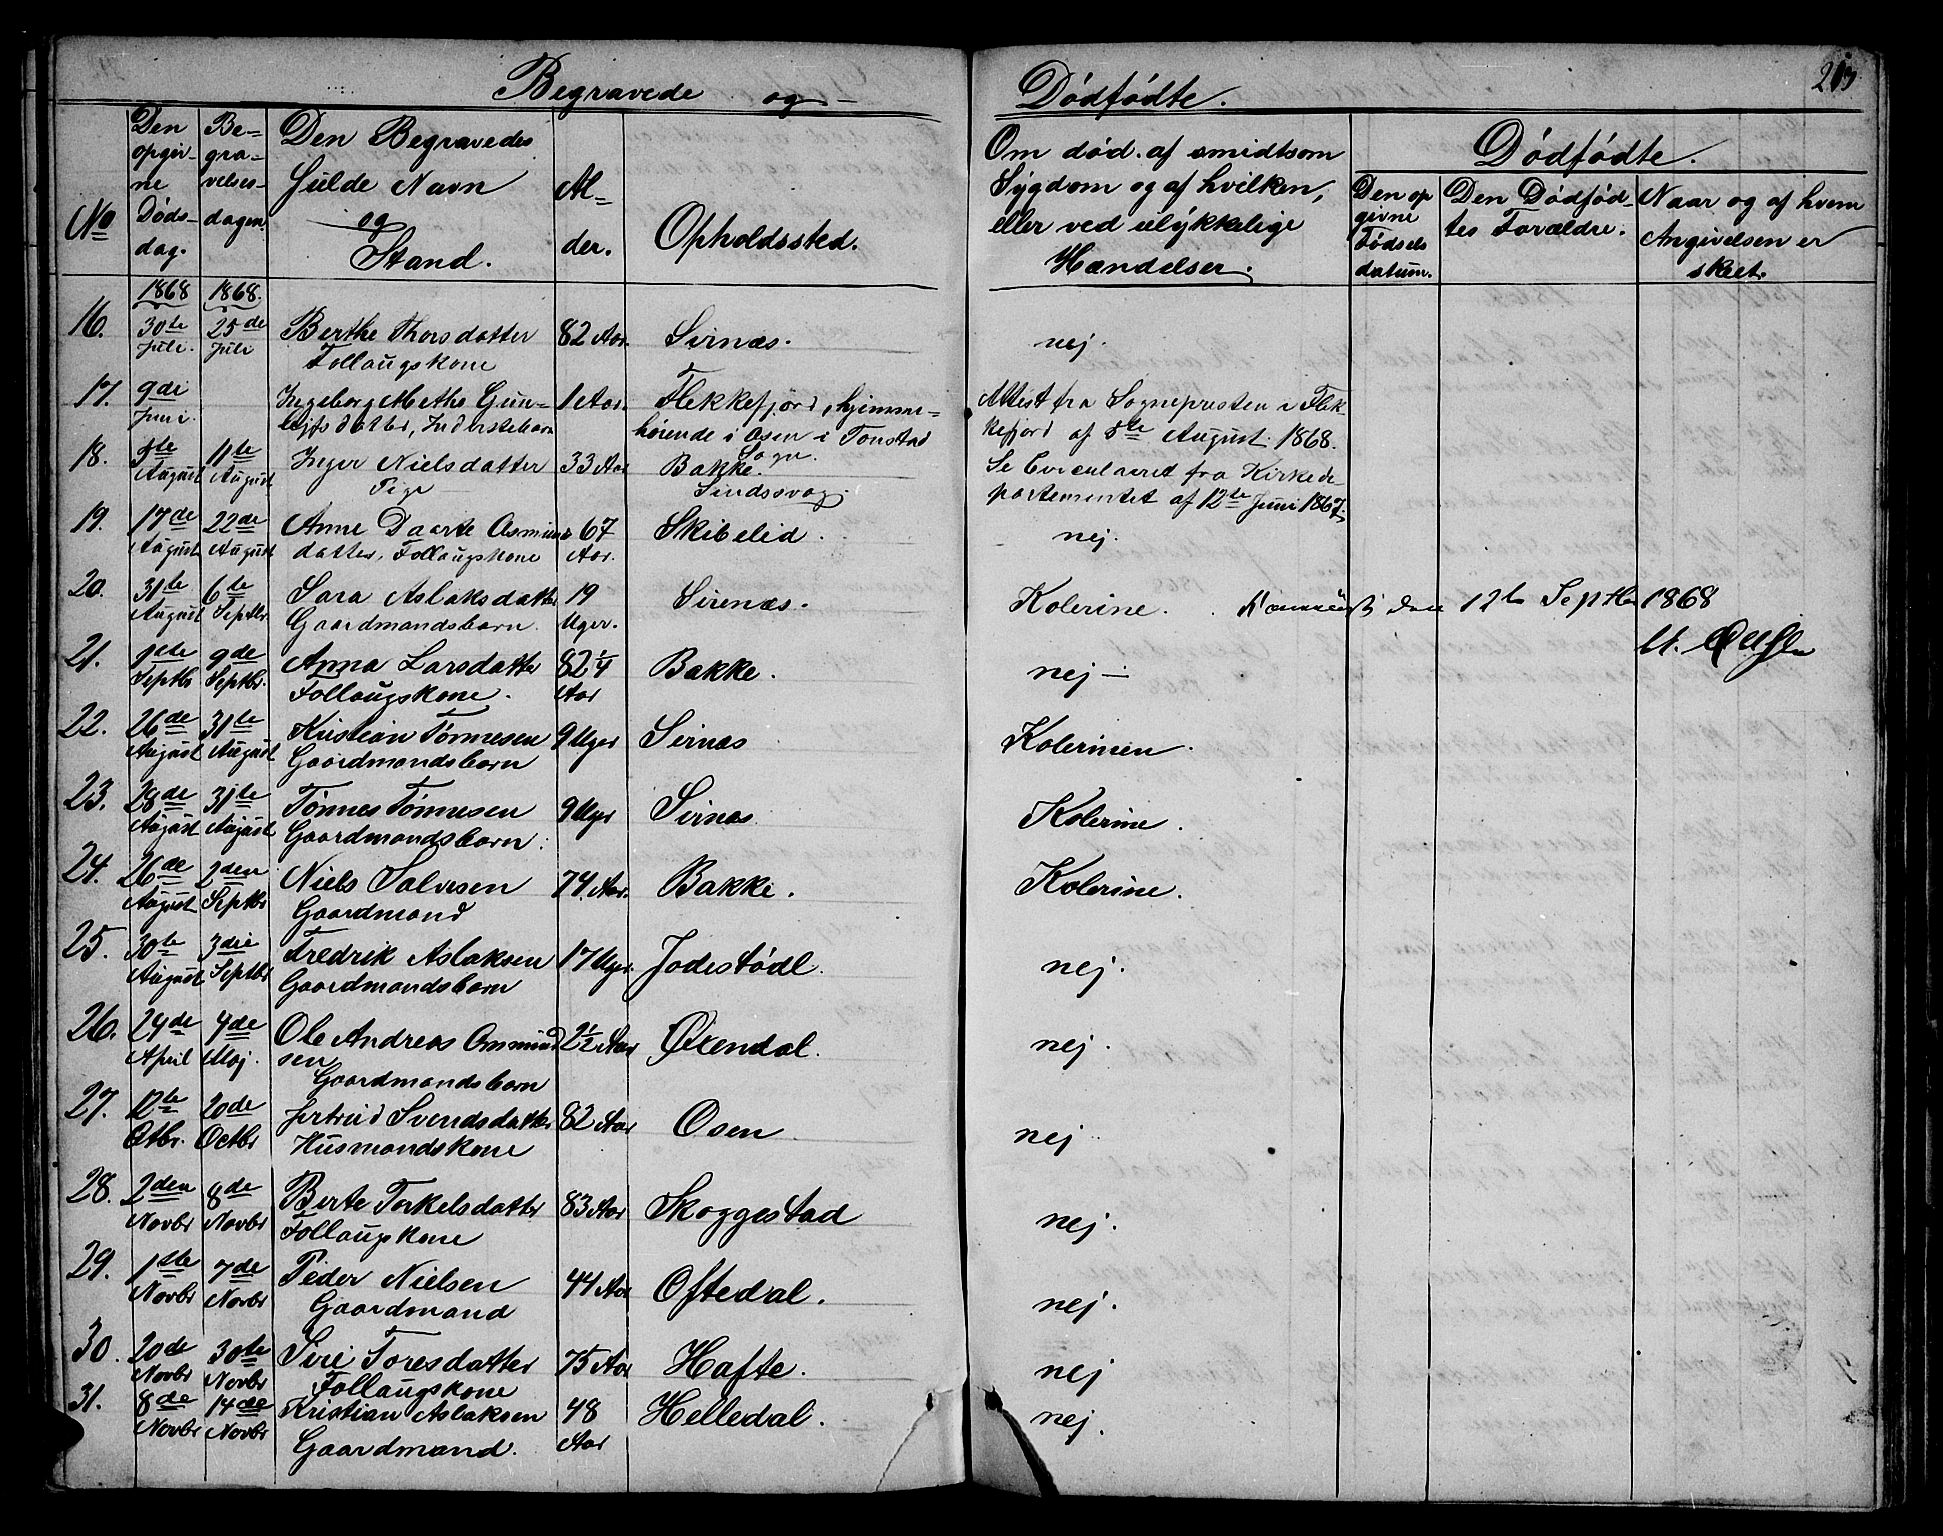 Begravede og
Dødfødte.
No
Den opgivne Døds-dag.
Begravelses-dagen
Den Begravedes Fulde Navn og Stand.
Alder.
Opholdssted.
Om død af smidtsom Sygdom og af hvilken, eller ved ulykkelige Hændelser.
Dødfødte.
Den opgivne Fødsels datum.
Den Dødfødtes Forældre.
Naar og af hvem Angivelsen er skeet.
1868 1868.
16. 30te Juli. 25de Juli Berthe Thorsdatter Follaugskone 82 Aar. Sirnæs. nej.
17. 9di Juni. Ingeborg Methe Gunleifsdatter, Inderstebarn 1 Aar. Flekkefjord, hjemmehørende i Osen i Tonstad Sogn. Attest fra Sognepresten i Flekkefjord af 8te August 1868.
18. 5te August 11te August Inger Nielsdatter Pige 33 Aar Bakke. Sindssvag. Se Circulæret fra Kirkedepartementet af 12te Juni 1867.
19. 17de August 22de August Anne Daarte Asmundsdatter, Follaugskone 67 Aar. Skibelid. nej.
20. 31te August 6te Septbr. Sara Aslaksdatter Gaardmandsbarn. 19 Uger. Sirenæs. Kolerine. den 12te Septbr 1868
21. 1ste Septbr 9de Septbr. Anna Larsdatter Follaugskone. 82 1/4 Aar Bakke. nej —
22. 26de August 31te August Kristian Tønnesen Gaardmandsbarn 9 Uger Sirnæs Kolerinen.
23. 28de August 31te August Tønnes Tønnesen Gaardmandsbarn. 9 Uger Sirnæs Kolerine.
24. 26de August 2den Septbr Niels Salvesen Gaardmand 74. Aar. Bakke. Kolerine.
25. 30te August 3die Septbr Fredrik Aslaksen Gaardmandsbarn 17 Uger. Jodestødl. nej.
26. 24de April 4de Maj. Ole Andreas Ommundsen Gaardmandsbarn 2 1/2 Aar Øxendal. nej.
27. 12te Octbr. 20de Octbr Jertrud Svendsdatter Husmandskone 82 Aar Osen nej.
28. 2den Novbr 8de Novbr Berte Torkelsdatter Follaugskone 83 Aar Skoggestad nej.
29. 1ste Novbr 7de Novbr Peder Nielsen Gaardmand 44 Aar Oftedal. nej.
30. 20de Novbr 30te Novbr Siri Toresdatter Follaugskone 75 Aar Hafte. nej
31. 8de Novbr 14de Novbr Kristian Aslaksen Gaardmand. 48 Aar Helledal. nej.